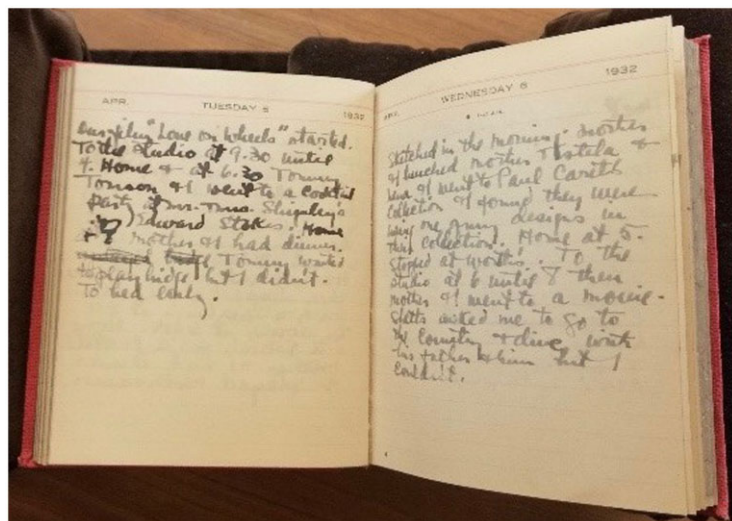 APR. TUESDAY 5 1932
"Love on Wheels" started.
To the studio at 9.30 until
4. Home & at 6.30 Tommy
Tomson & I went to a Cocktail
Party at Mr. & Mrs. Shipley's
Edward Stokes. Home
mother & I had dinner.
Tommy wanted
to play bridge but I didn't.
To bed early.
APR. WEDNESDAY 6 1932
Sketched in the morning. Mother
& I lunched Mother &
went to Paul
Collection & found they were
using one of my designs in
their collection. Home at 5.
Stopped at Worth's. To the
studio at 6 until 8 then
mother & I went to a movie.
asked me to go to
the Country & dine with
his father & him but I
couldn't.